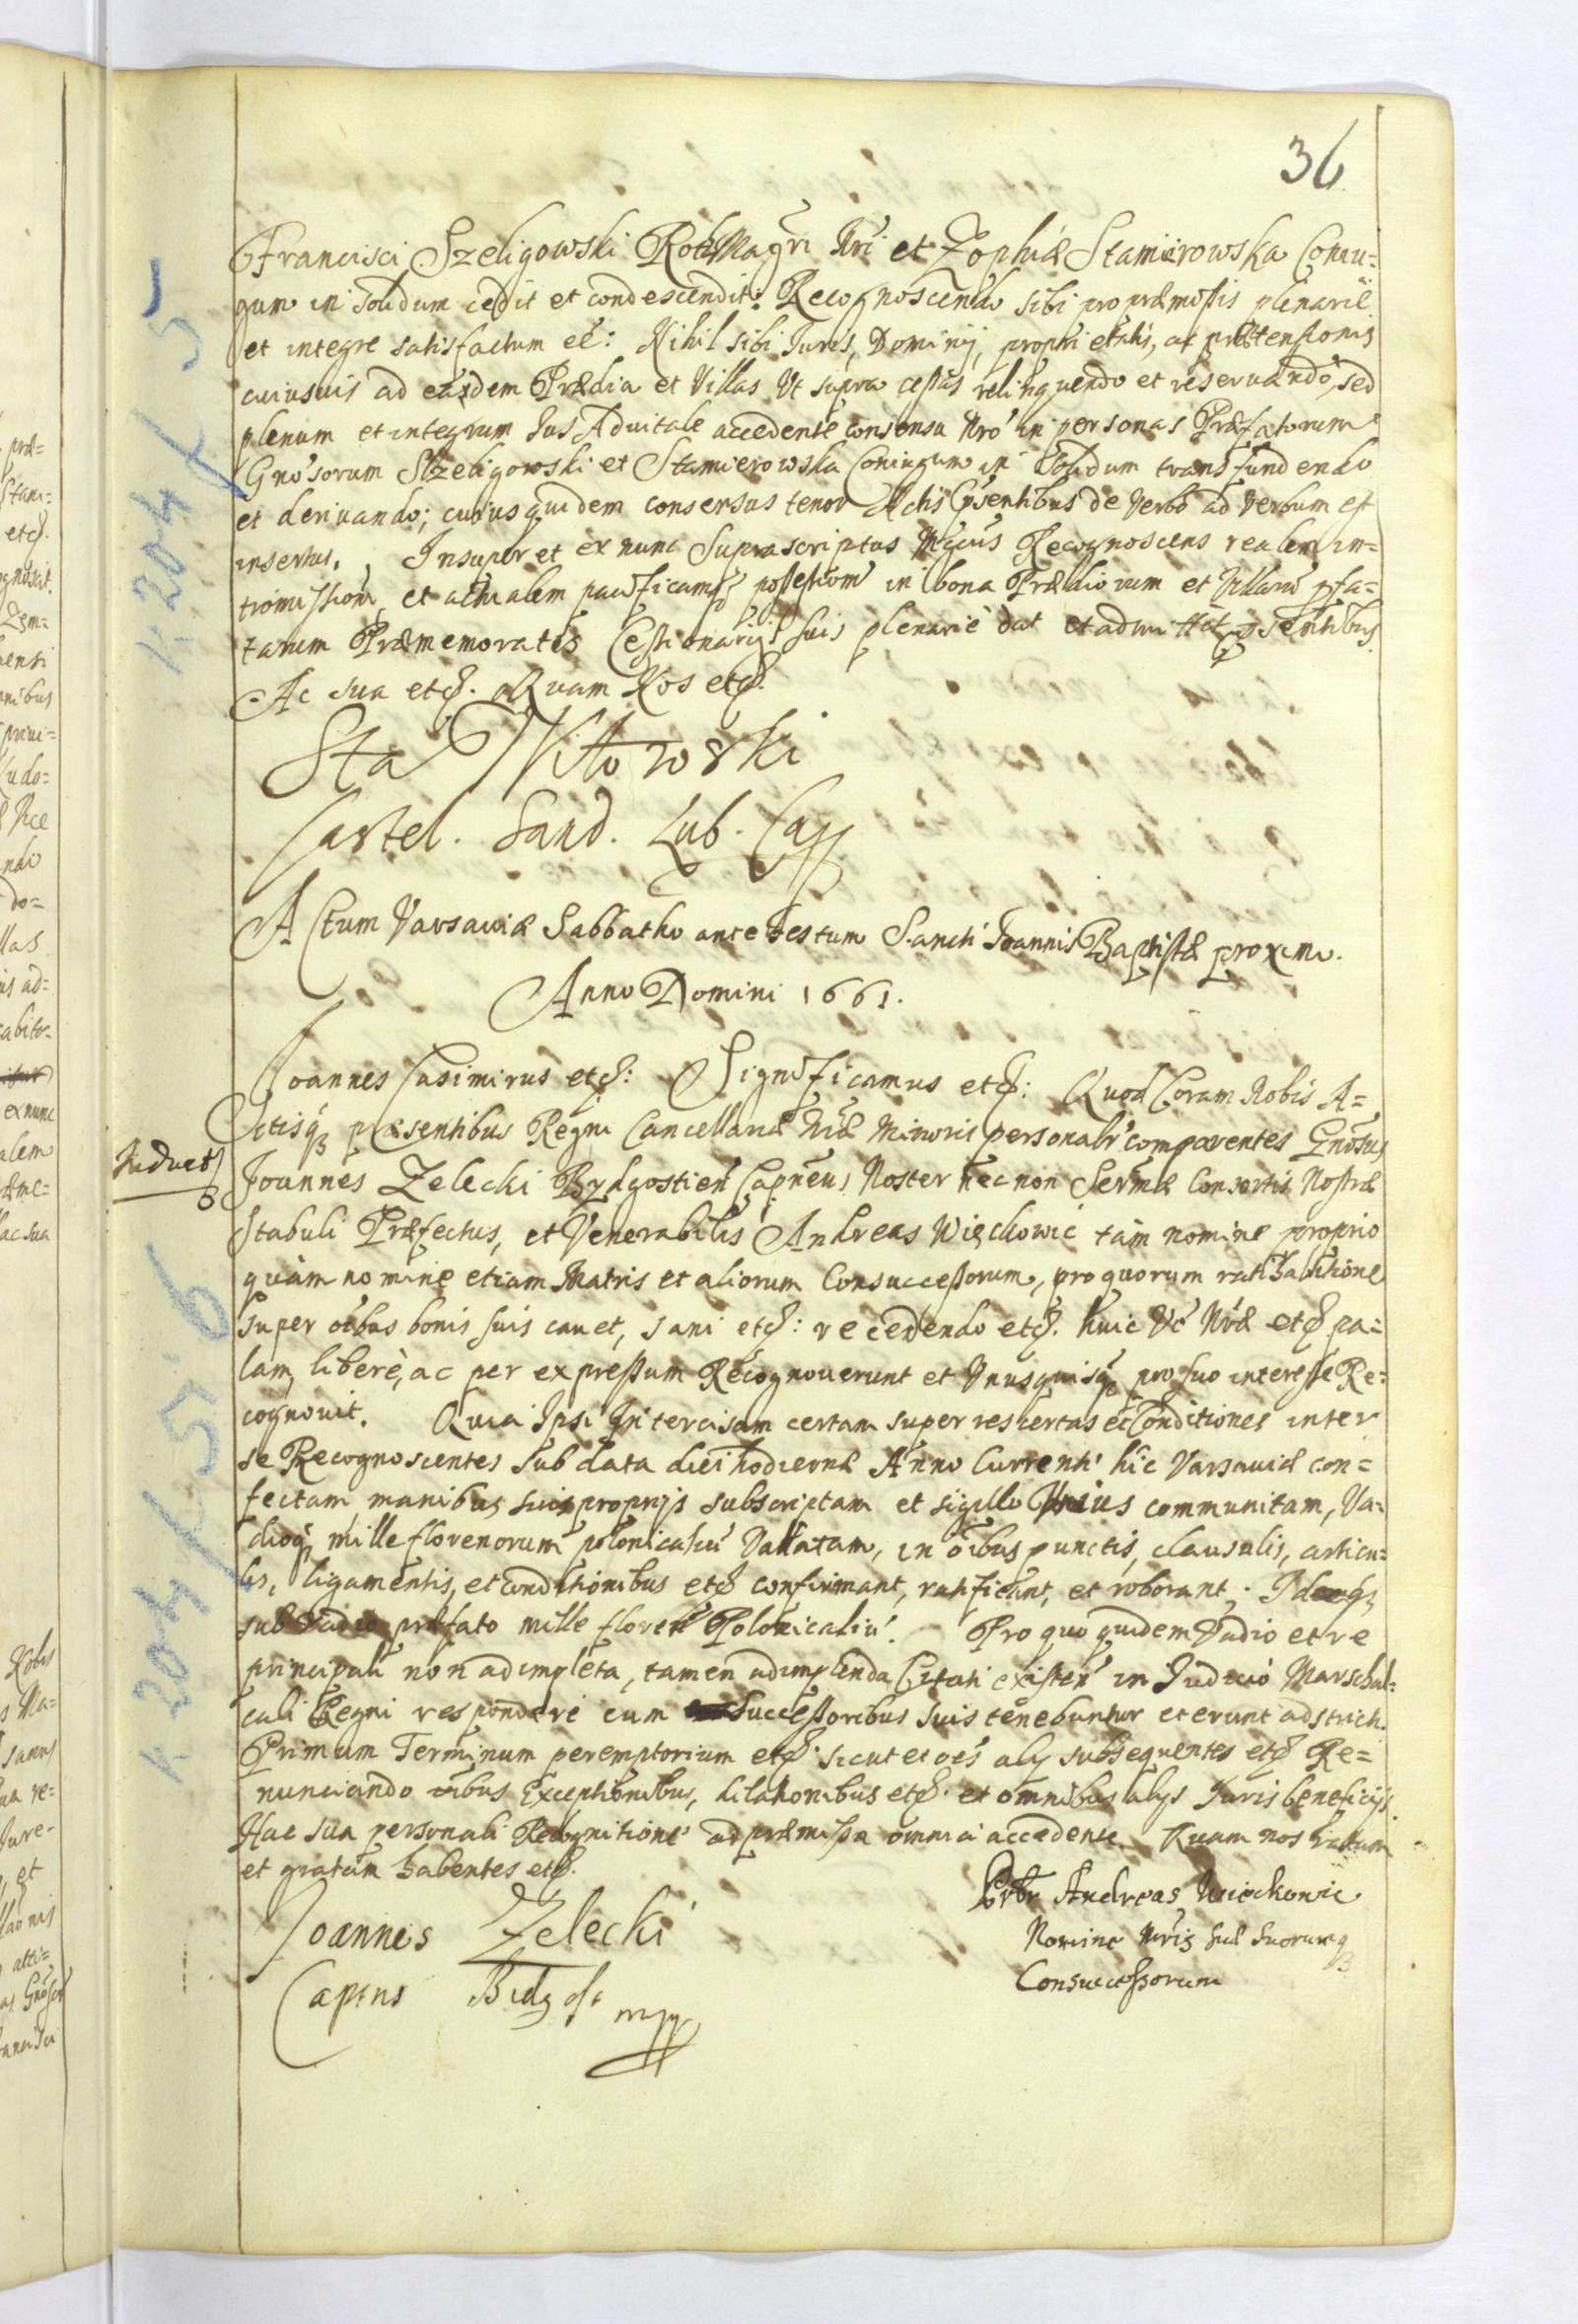 36
Francisci Szeligowski RothMagri Nri et Zophiæ Stamirowska Coniu=
gum in solidum cedit et condescendit: Recognoscendo sibi pro præmissis plenarie
et integre satisfactum eē: Nihil sibi Juris, Dominij, proprietatis, ac prætensionis
cuiusuis ad easdem Prædia et Villas Ut supra cessas relinquendo et reseruando, sed
plenum et integrum Jus Aduitale accedente consensu Nro in personas Præfatorum
Gnosorum Szeligowski et Stamierowska Coniugum in solidum transfundendo
et deriuando; cuius quidem consensus tenor Actis Psentibus de Verbo ad Verbum est
insertus. Insuper et ex nunc Suprascriptus Mgcus Recognoscens realem in=
tromissionem et actualem pacificamq possessionem in bona Prædiorum et Villarū pfa=
tarum Præmemoratis Cessionarijs suis plenarie dat et admittit psentibus
Ac sua etcꝭ. Quam Nos etcꝭ.
Sta Witowski
Castel. Sand. Lub. Cap
Actum Varsauiæ Sabbatho ante Festum Sancti Joannis Baptistæ proximo.
Anno Domini 1661.
Joannes Casimirus etcꝭ: Significamus etcꝭ: Quod Coram Nobis A=
ctisq præsentibus Regni Cancellariæ Nræ Minoris personalr comparentes Gnosus
Joannes Zelecki Bydgostien Capneus Noster necnon Sermæ Consortis Nostræ
Stabuli Præfectus, et Venerabilis Andreas Więckowic tam nomine proprio
quàm nomine etiam Matris et aliorum Consuccessorum, pro quorum ratihabitione
super oibus bonis suis cauet, sani etcꝭ: recedendo etcꝭ. huic Vc Nræ etcꝭ pa=
lam, liberè, ac per expressum Recognouerunt et Vnusquisq pro suo interesse Re=
cognouit. Quia Ipsi Intercisam certam super res certas et Conditiones inter
se Recognoscentes sub data diei hodiernæ Anno Currenti hic Varsauiæ con=
fectam manibus suis proprijs subscriptam et sigillo Vnius communitam, Va=
dioq mille florenorum polonicaliū Vallatam, in oibus punctis, clausulis, articu=
lis, ligamentis, et conditionibus etcꝭ confirmant, ratificant, et roborant; Idq
sub Vadio præfato mille floren Polonicaliū. Pro quo quidem Vadio et re
principali non adimpleta, tamen adimplenda Citati existen in Judicio Marschal=
cali Regni respondere cum Successoribus suis tenebuntur et erunt adstricti.
Primum Terminum peremptorium etcꝭ. sicut et oēs alij subsequentes etcꝭ Re=
nunciando oibus Exceptionibus, dilationibus etcꝭ. et omnibus alijs Juris beneficijs.
Hac sua personali Recognitione ad præmissa omnia accedente. Quam nos ratam
et gratam habentes etcꝭ.
Joannes Zelecki
Captns Bidgost mpp
Prbr Andreas Wieckowic
Nomine Mris suæ suorumq
Consuccessorum
K 204 f 5
K 204 f 5 6